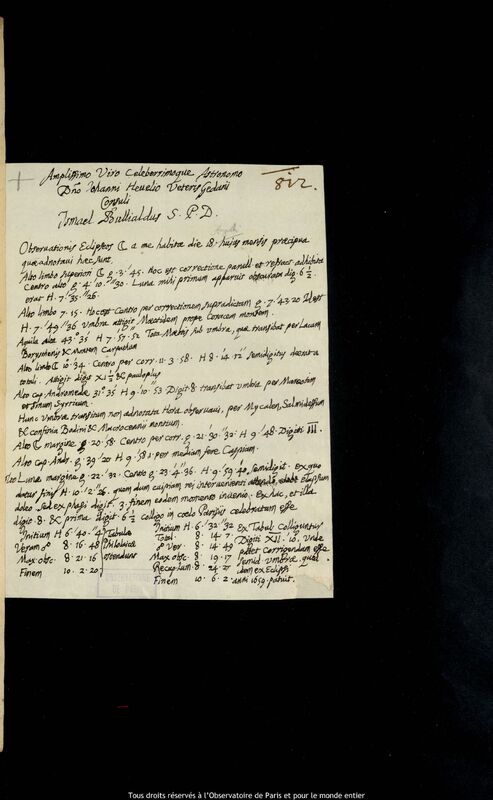 Amplissimo Viro Celeberrimoque Astronomo
Dño Johanni Hevelio Veteris Gedani
Consuli
Ismael Bullialdus S. P. D.
812.
Observationis Eclipseos ☾ a me habitæ die 18. hujus mensis præcipua
quæ adnotavi hæc sunt.
Alto limbo superiori ☾ g. 3. 45. hoc est correctione parall. et refract. adhibita
Centro alto g. 4. 10. 30. Luna mihi primum apparuit obscurata dig. 6 ½.
erat H. 7. 35. 26.
Alto limbo 7. 15. hoc est Centro per correctionem supradictam g. 7. 43. 20 Id est
H. 7. 49. 36 Umbra attigit Mæotidem prope Coracem montem.
Aquila alta 43° 35' H 7. 57. 52 Tota Mæotis sub umbra, quæ transibat per Lacum
Borysthenis & Montem Carpathum
Alto limbo ☾ 10. 34. Centro per corr. 11. 3. 58. H 8. 14. 12 Semidigitus deerat a
totali. Attigit digit. XI ½ & pauloplus
Alto cap. Andromedæ 31° 35' H 9. 10. 53 Digit 8 transibat umbra, per Mareotim
et sinum Syrticum.
Hunc Umbræ transitum non adnotata Hora observavi, per Mycalen, Salmidessum
& confinia Bodini & Macrocemnii montium.
Alto ☾ margine g. 20. 58. Centro per corr. g. 21. 30. 32. H 9. 48. Digiti III.
Alto cap. Andr. g. 39. 20 H 9. 58 ½ per mediam fere Caspium.
Alto Lunæ margine g. 22. 32. Centro g. 23. 4. 36. H 9. 59. 40. Semidigit. ex quo
datur finis H 10. 2. 26. quem dum cuipiam rei intervenienti elapsum
doleo. Sed ex phasi digit. 3. finem eodem momento invenio. Ex hac, et illa
digit. 8. & prima digit. 6 ½ colligo in cœlo Parisiis celebratum esse
Initium H 6. 40. 4 Tabulæ Initium H 6. 32. 32 Ex Tabulis Colliguntur
Veram ☍ 8. 16. 48 Philolaicæ Total. 8. 14. 7 Digiti XII. 10. Unde
Max obsc. 8. 21. 16 Ostendunt ☍ Ver. 8. 14. 49 patet corrigendam esse
Finem 10. 2. 20 Max obsc. 8. 19. 17 semid. umbræ. quod
Recup. lum. 8. 24. 27 idem ex Eclipsi
Finem 10. 6. 2 anni 1659 patuit.
OBSERVATOIRE
DE PARIS
Tous droits réservés à l'Observatoire de Paris et pour le monde entier